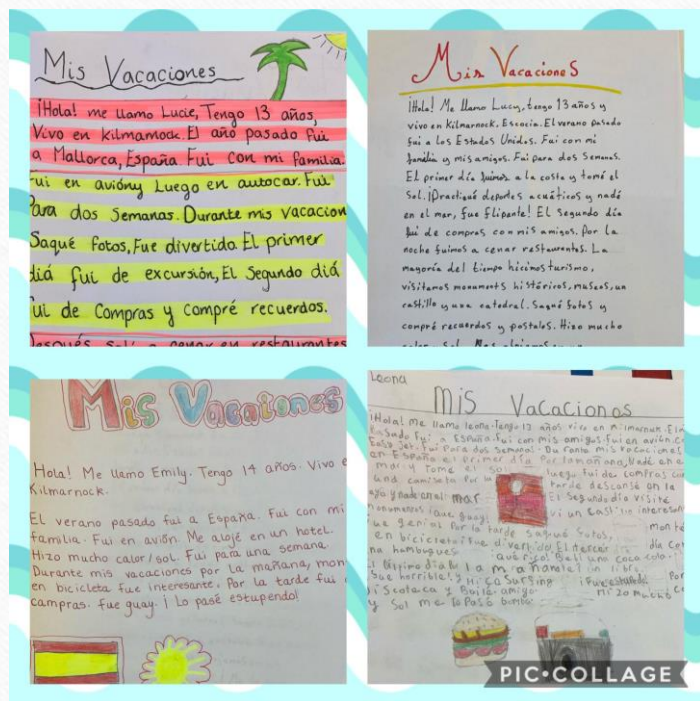 Mis Vacaciones
¡Hola! me llamo Lucie, Tengo 13 años,
Vivo en Kilmarnock. El año pasado fui
a Mallorca, España Fui con mi familia.
Fui en avióny Luego en autocar. Fui
Para dos Semanas. Durante mis vacacion
Saqué fotos, Fue divertido. El primer
diá fui de excursión, El Segundo diá
fui de Compras y compré recuerdos.
Después salí a cenar en restaurantes
Mis Vacaciones
¡Hola! Me llamo Lucy, tengo 13 años y
vivo en Kilmarnock. Escocia. El verano pasado
fui a los Estados Unidos. Fui con mi
familia y mis amigos. Fui para dos Semanas.
El primer día fuimos a la costa y tomé el
sol. ¡Practiqué deportes acuáticos y nadé
en el mar, fue flipante! El segundo día
fui de compras con mis amigos. Por la
noche fuimos a cenar restaurantes. La
mayoría del tiempo hicimos turismo,
visitamos monuments históricos, museos, un
castillo y una catedral. Saqué fotos y
compré recuerdos y postales. Hizo mucho
calor, sol.
Mis Vacaiones
Hola! Me llamo Emily. Tengo 14 años. Vivo e
Kilmarnock.
El verano pasado fui a España. Fui con mi
familia. Fui en avión. Me alojé en un hotel.
Hizo mucho calor/sol. Fui para una semana.
Durante mis vacaciones por la mañana, mon
en bicicleta fue interesante. Por la tarde fui
compras. fue guay. ¡Lo pasé estupendo!
Leona
Mis Vacacionos
¡Hola! me llamo leona. Tengo 13 años vivo en Kilmarnuck. El
Pasado Fui a España. Fui con mis amigos. Fui en avión.
Fui Para dos Semanas. Durante mis vacaciones
en España el primer día Por la mañana, Nadé en e
mar. y Tomé el sol luego fui de compras
una camiseta Por la tarde descansé en la
y nade en el mar El Segundo día visité
monumentos ¡que guay vi un castillo interesan
ue genial Por la tarde saqué futos, monté
en bicicleta fue divertido El tercer día
na hamburgues bebí una coca cola
la mañana leí un libro
fue horrible! y Hica Surfing ¡Fue estupendo Por
iscoteca y Bailé amigo Hizo mucho
y Sol me lo Pasé bomba
PIC•COLLAGE